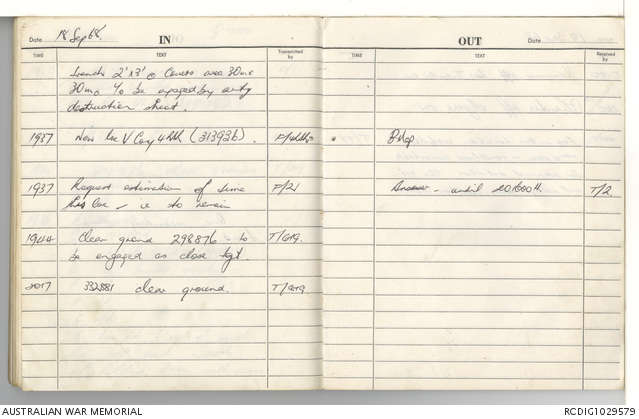 Date 18 Sep 68 IN
TIME TEXT Transmitted by
trench 2'x3' @ Centre area 30m x
30m. to be engaged by arty
destruction shoot.
1937 New loc V Coy 4 (313926). F/
1937 Request estimation of time
this loc - is to remain F/21
1944 Clear ground 298876 - to T/619.
be engaged as close tgt
2017 332881 clear ground. T/619
OUT Date
TIME TEXT Received by
Answer - until 201600H. T/2.
AUSTRALIAN WAR MEMORIAL RCDIG1029579